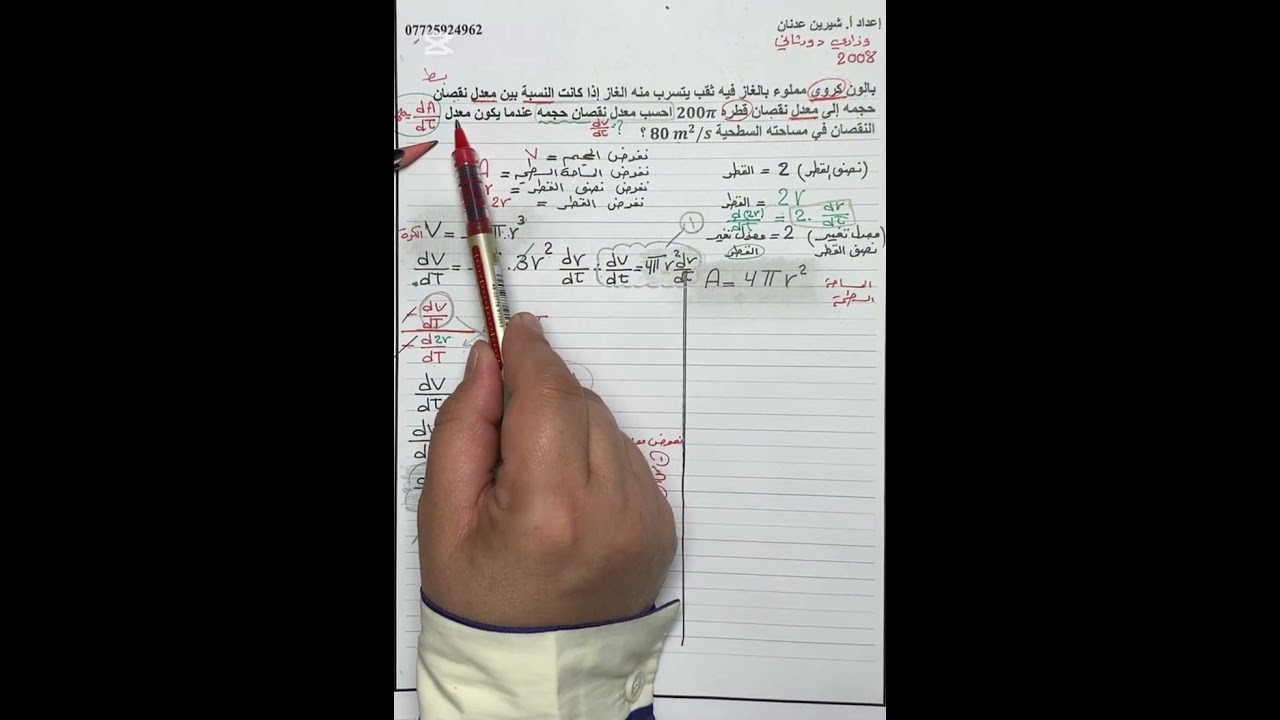 إعداد أ. شيرين عدنان
07725924962
وزاري دور ثاني
2008
بالون كروي مملوء بالغاز فيه ثقب يتسرب منه الغاز إذا كانت النسبة بين معدل نقصان
حجمه إلى معدل نقصان قطره 200π احسب معدل نقصان حجمه عندما يكون معدل
dA/dt
النقصان في مساحته السطحية 80 m²/s ؟
dv/dt = ?
نفرض الحجم = V
نفرض المساحة السطحية = A
نفرض نصف القطر = r
نفرض القطر = 2r
(نصف القطر) 2 = القطر
2r = القطر
d(2r)/dt = 2. dr/dt
(معدل تغيير) 2 = معدل تغير
نصف القطر القطر
الكرة V = π r³
dV/dt = . 3r² dr/dt
dv/dt = 4πr² dr/dt
1
A = 4πr²
المساحة
السطحية
- dV/dT
- d2r/dT
dV/dt
dV
dt
نعوض